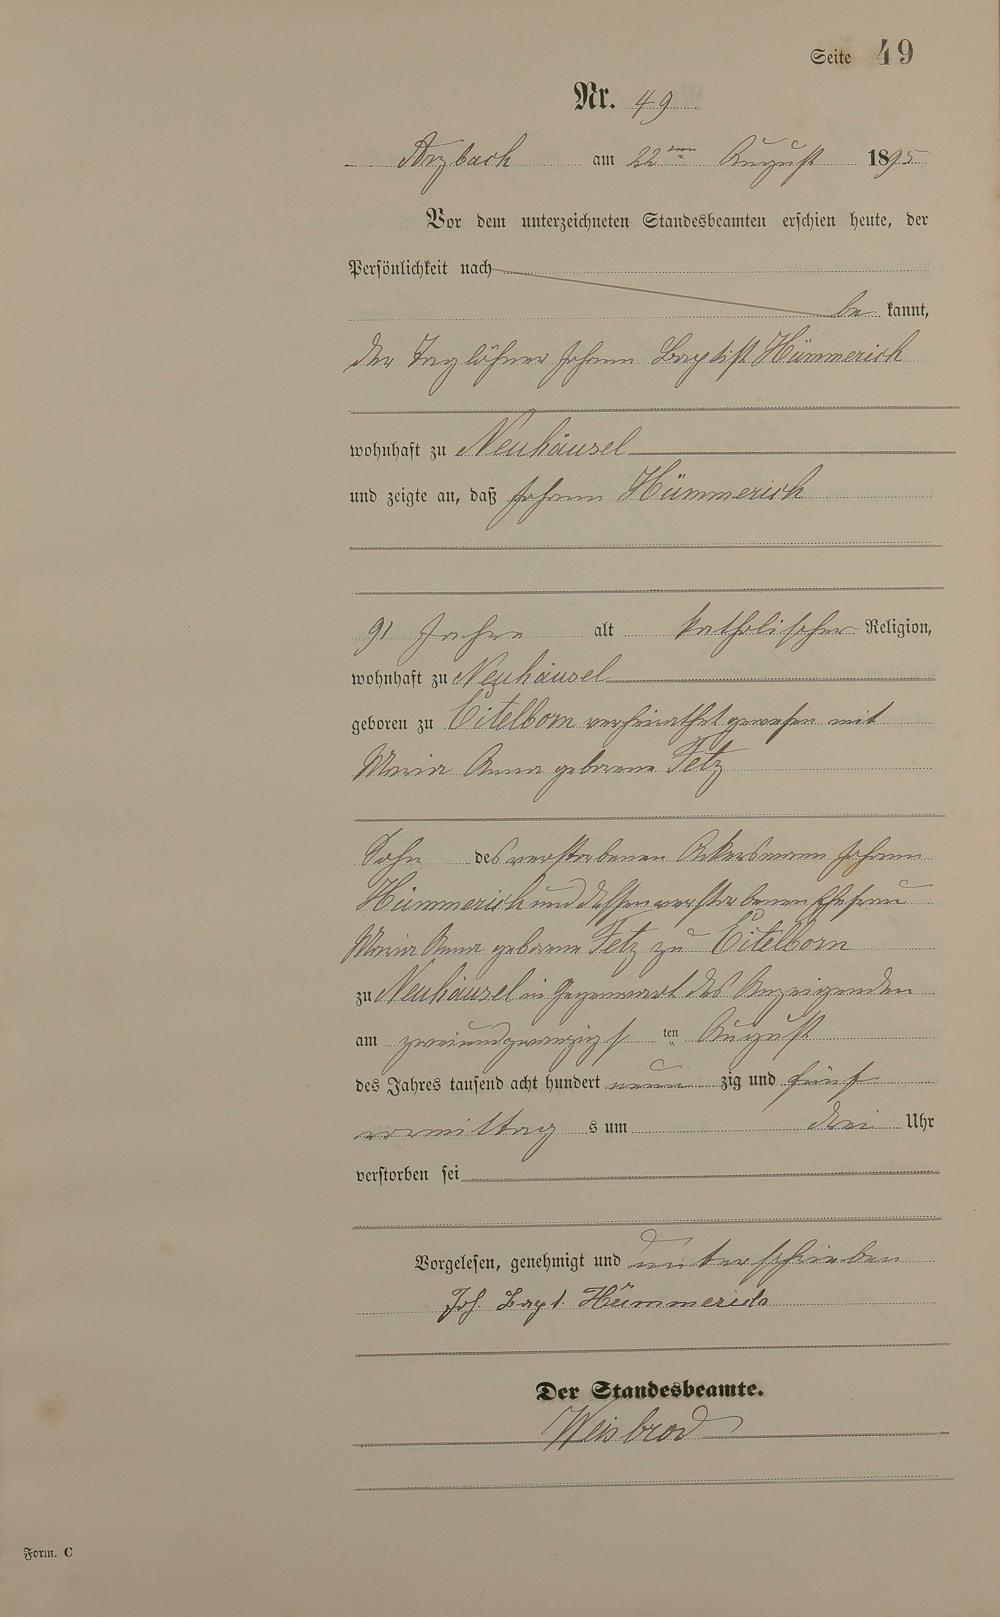 Seite 49
Nr. 49
Arzbach am 22ten August 1895
Vor dem unterzeichneten Standesbeamten erschien heute, der
Persönlichkeit nach
be kannt,
der Taglöhner Johann Baptist Hümmerich
wohnhaft zu Neuhäusel
und zeigte an, daß Johann Hümmerich
91 Jahre alt katholischer Religion,
wohnhaft zu Neuhäusel
geboren zu Eitelborn verheirathet gewesen mit
Maria Anna geborene Fetz
Sohn des verstorbenen Ackersmann Johann
Hümmerich und dessen verstorbenen Ehefrau
Maria Anna geborene Fetz zu Eitelborn
zu Neuhäusel in Gegenwart des Anzeigenden
am zweiundzwanzigs ten August
des Jahres tausend acht hundert neun zig und fünf
vormittag s um drei Uhr
verstorben sei
Vorgelesen, genehmigt und unterschrieben
Joh. Bapt. Hümmerich
Der Standesbeamte.
Weisbrod
Form. C